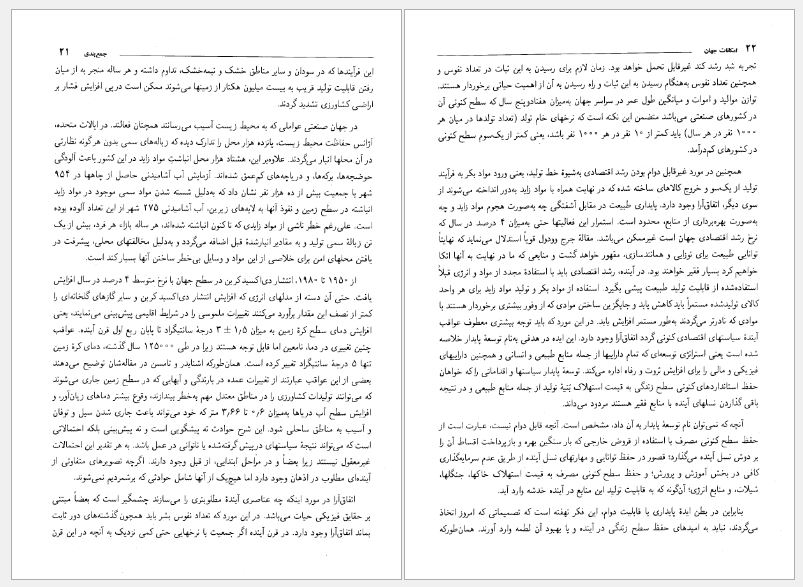 جمع‌بندی ۲۱
این فرآیندها که در سودان و سایر مناطق خشک و نیمه‌خشک، تداوم داشته و هر ساله منجر به از میان
رفتن قابلیت تولید قریب به بیست میلیون هکتار از زمینها می‌شوند ممکن است در پی افزایش فشار بر
اراضی کشاورزی تشدید گردند.
در جهان صنعتی عواملی که به محیط زیست آسیب می‌رسانند همچنان فعالند. در ایالات متحده،
آژانس حفاظت محیط زیست، پانزده هزار محل را تدارک دیده که زباله‌های سمی بدون هرگونه نظارتی
در آن محلها انبار می‌گردند. علاوه‌براین، هشتاد هزار محل انباشتِ مواد زاید در این کشور باعث آلودگی
حوضچه‌ها، برکه‌ها، و دریاچه‌های کم‌عمق شده‌اند. آزمایش آب آشامیدنی حاصل از چاهها در ۹۵۴
شهر با جمعیت بیش از ده هزار نفر نشان داد که به‌دلیل شسته شدن مواد سمی موجود در مواد زاید
انباشته در سطح زمین و نفوذ آنها به لایه‌های زیرین، آب آشامیدنی ۲۷۵ شهر از این تعداد آلوده بوده
است. علی‌رغم خطر ناشی از مواد زایدی که تا کنون انباشته شده‌اند، هر ساله بازاء هر فرد، بیش از یک
تن زبالهٔ سمی تولید و به مقادیر انبارشدهٔ قبل اضافه می‌گردد و به‌دلیل مخالفتهای محلی، پیشرفت در
یافتن محلهای امن برای خلاصی از این مواد و وسایل بی‌خطر ساختن آنها بسیار کند است.
از ۱۹۵۰ تا ۱۹۸۰، انتشار دی‌اکسیدکربن در سطح جهان با نرخ متوسط ۴ درصد در سال افزایش
یافت. حتی آن دسته از مدلهای انرژی که افزایش انتشار دی‌اکسید کربن و سایر گازهای گلخانه‌ای را
کمتر از نصف این مقدار برآورد می‌کنند تغییرات ملموسی را در شرایط اقلیمی پیش‌بینی می‌نمایند، یعنی
افزایش دمای سطح کرهٔ زمین به میزان ۱٫۵ ± ۳ درجهٔ سانتیگراد تا پایان ربع اول قرن آینده. عواقب
چنین تغییری در دما، نامعین اما قابل توجه هستند زیرا در طی ۱۲۵۰۰۰ سال گذشته، دمای کرهٔ زمین
تنها ۵ درجهٔ سانتیگراد تغییر کرده است. همان‌طورکه اشنایدر و تامسن در مقاله‌شان توضیح می‌دهند
بعضی از این عواقب عبارتند از تغییرات عمده در بارندگی و آبهایی که در سطح زمین جاری می‌شوند
که می‌توانند تولیدات کشاورزی را در مناطق معتدل مهم به‌خطر بیندازند، وقوع بیشتر دماهای زیان‌آور، و
افزایش سطح آب دریاها به‌میزان ۰٫۶ تا ۳٫۶۶ متر که خود می‌تواند باعث جاری شدن سیل و توفان
و آسیب به مناطق ساحلی شود. این شرح حوادث نه پیشگویی است و نه پیش‌بینی بلکه احتمالاتی
است که می‌تواند نتیجهٔ سیاستهای درپیش‌گرفته‌شده یا ناتوانی در عمل باشد. به هر تقدیر این احتمالات
غیرمعقول نیستند زیرا بعضاً و در مراحل ابتدایی، از قبل وجود دارند. اگرچه تصویرهای متفاوتی از
آینده‌ای مطلوب در اذهان وجود دارد اما هیچ‌یک از آنها شامل حوادثی که برشمردیم نمی‌شوند.
اتفاق‌آرا در مورد اینکه چه عناصری آیندهٔ مطلوبتری را می‌سازند چشمگیر است که بعضاً مبتنی
بر حقایق فیزیکی حیات می‌باشد. در این مورد که تعداد نفوس بشر باید همچون گذشته‌های دور ثابت
بماند اتفاق‌آرا وجود دارد. در قرن آینده اگر جمعیت با نرخهایی حتی کمی نزدیک به آنچه در این قرن
۲۲ امکانات جهان
تجربه شد رشد کند غیرقابل تحمل خواهد بود. زمان لازم برای رسیدن به این ثبات در تعداد نفوس و
همچنین تعداد نفوس به‌هنگام رسیدن به این ثبات و راه رسیدن به آن از اهمیت حیاتی برخوردار هستند.
توازن موالید و اموات و میانگین طول عمر در سراسر جهان به‌میزان هفتادوپنج سال که سطح کنونی آن
در کشورهای صنعتی می‌باشد متضمن این نکته است که نرخهای خام تولد (تعداد تولدها در میان هر
۱۰۰۰ نفر در هر سال) باید کمتر از ۱۰ نفر در هر ۱۰۰۰ نفر باشد، یعنی کمتر از یک‌سوم سطح کنونی
در کشورهای کم‌درآمد.
همچنین در مورد غیرقابل دوام بودن رشد اقتصادی به‌شیوهٔ خط تولید، یعنی ورود مواد بکر به فرآیند
تولید از یک‌سو و خروج کالاهای ساخته شده که در نهایت همراه با مواد زاید به‌دور انداخته می‌شوند از
سوی دیگر، اتفاق‌آرا وجود دارد. پایداری طبیعت در مقابل آشفتگی چه به‌صورت هجوم مواد زاید و چه
به‌صورت بهره‌برداری از منابع، محدود است. استمرار این فعالیتها حتی به‌میزان ۴ درصد در سال که
نرخ رشد اقتصادی جهان است غیرممکن می‌باشد. مقالهٔ جرج وودول قویاً استدلال می‌نماید که نهایتاً
توانایی طبیعت برای نوزایی و همانندسازی، مقهور خواهد گشت و منابعی که ما در نهایت به آنها اتکا
خواهیم کرد بسیار فقیر خواهند بود. در آینده، رشد اقتصادی باید با استفادهٔ مجدد از مواد و انرژی قبلاً
استفاده‌شده از قابلیت تولید طبیعت پیشی بگیرد. استفاده از مواد بکر و تولید مواد زاید برای هر واحد
کالای تولیدشده مستمراً باید کاهش یابد و جایگزین ساختن موادی که از وفور بیشتری برخوردار هستند با
موادی که نادرتر می‌گردند به‌طور مستمر افزایش یابد. در این مورد که باید توجه بیشتری معطوف عواقب
آیندهٔ سیاستهای اقتصادی کنونی گردد اتفاق‌آرا وجود دارد. این ایده در هدفی به‌نام توسعهٔ پایدار خلاصه
شده است یعنی استراتژی توسعه‌ای که تمام داراییها از جمله منابع طبیعی و انسانی و همچنین داراییهای
فیزیکی و مالی را برای افزایش ثروت و رفاه اداره می‌کند. توسعهٔ پایدار سیاستها و اقداماتی را که خواهان
حفظ استانداردهای کنونی سطح زندگی به قیمت استهلاک بُنیهٔ تولید از جمله منابع طبیعی و در نتیجه
باقی گذاردن نسلهای آینده با منابع فقیر هستند مردود می‌داند.
آنچه که نمی‌توان نام توسعهٔ پایدار به آن داد، مشخص است. آنچه قابل دوام نیست، عبارت است از
حفظ سطح کنونی مصرف با استفاده از قروض خارجی که بار سنگین بهره و بازپرداخت اقساط آن را
بر دوش نسل آینده می‌گذارد؛ قصور در حفظ توانایی و مهارتهای نسل آینده از طریق عدم سرمایه‌گذاری
کافی در بخش آموزش و پرورش؛ و حفظ سطح کنونی مصرف به قیمت استهلاک خاکها، جنگلها،
شیلات، و منابع انرژی؛ آن‌گونه که به قابلیت تولید این منابع در آینده خدشه وارد آید.
بنابراین در بطن ایدهٔ پایداری یا قابلیت دوام، این فکر نهفته است که تصمیماتی که امروز اتخاذ
می‌گردند، نباید به امیدهای حفظ سطح زندگی در آینده و یا بهبود آن لطمه وارد آورند. همان‌طورکه